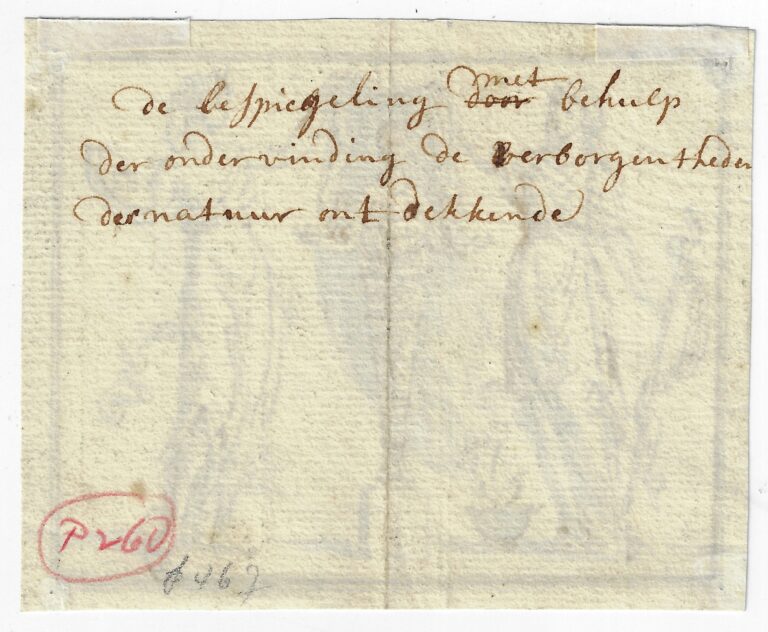 de bespiegeling door met behulp
der ondervinding de verborgentheden
der natuur ont dekkende
P260